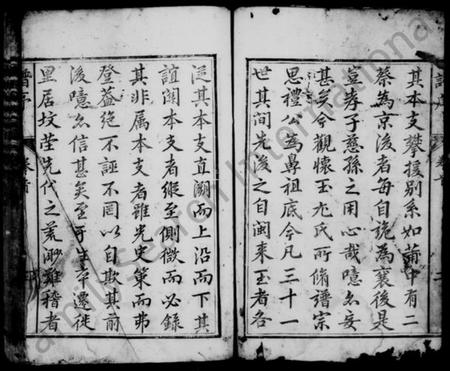 其本支攀援別系如莆中有二
蔡為京後者每自詭為襄後是
豈孝子慈孫之用心哉噫亦妄
甚矣今觀懷玉尤氏所脩譜宗
思禮公為鼻祖底今凡三十一
世其間先後之自閩來玉者各
從其本支直溯而上沿而下其
誼闗本支者縱至側微而必錄
其非属本支者雖光史策而弗
登葢絶不誣不罔以自欺其前
後噫亦信甚矣至于生卒遷徙
里居墳塋先代之荒渺難稽者
譜序
卷首